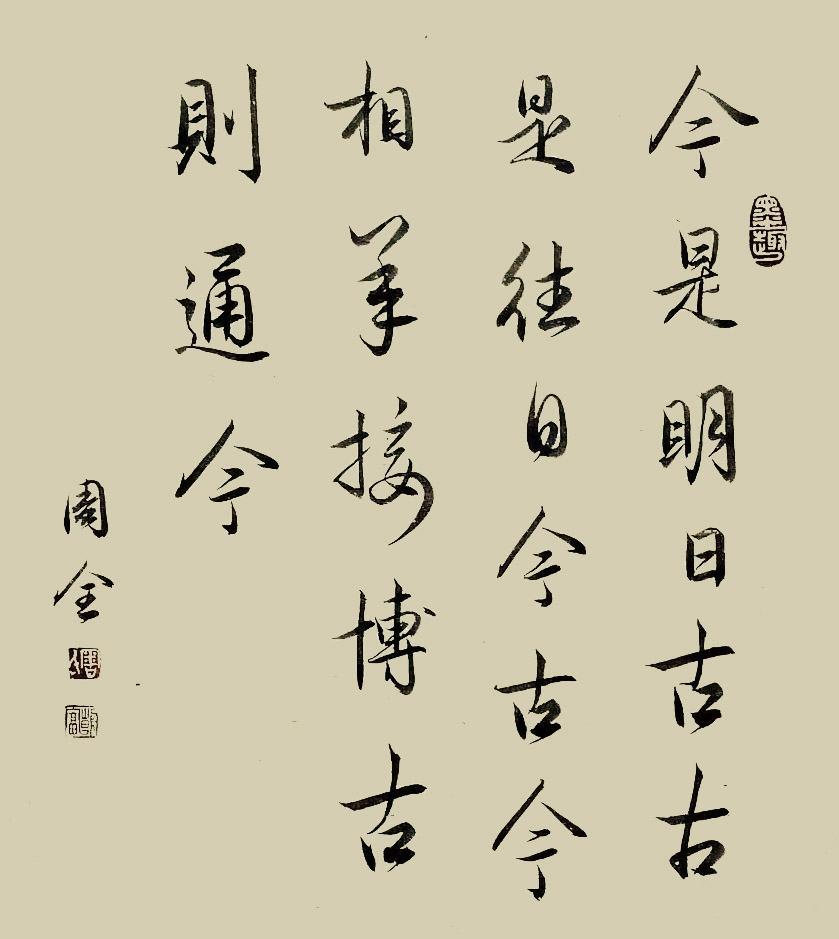 今是明日古古
是往日今古今
相承接博古
則通今
周全
墨趣